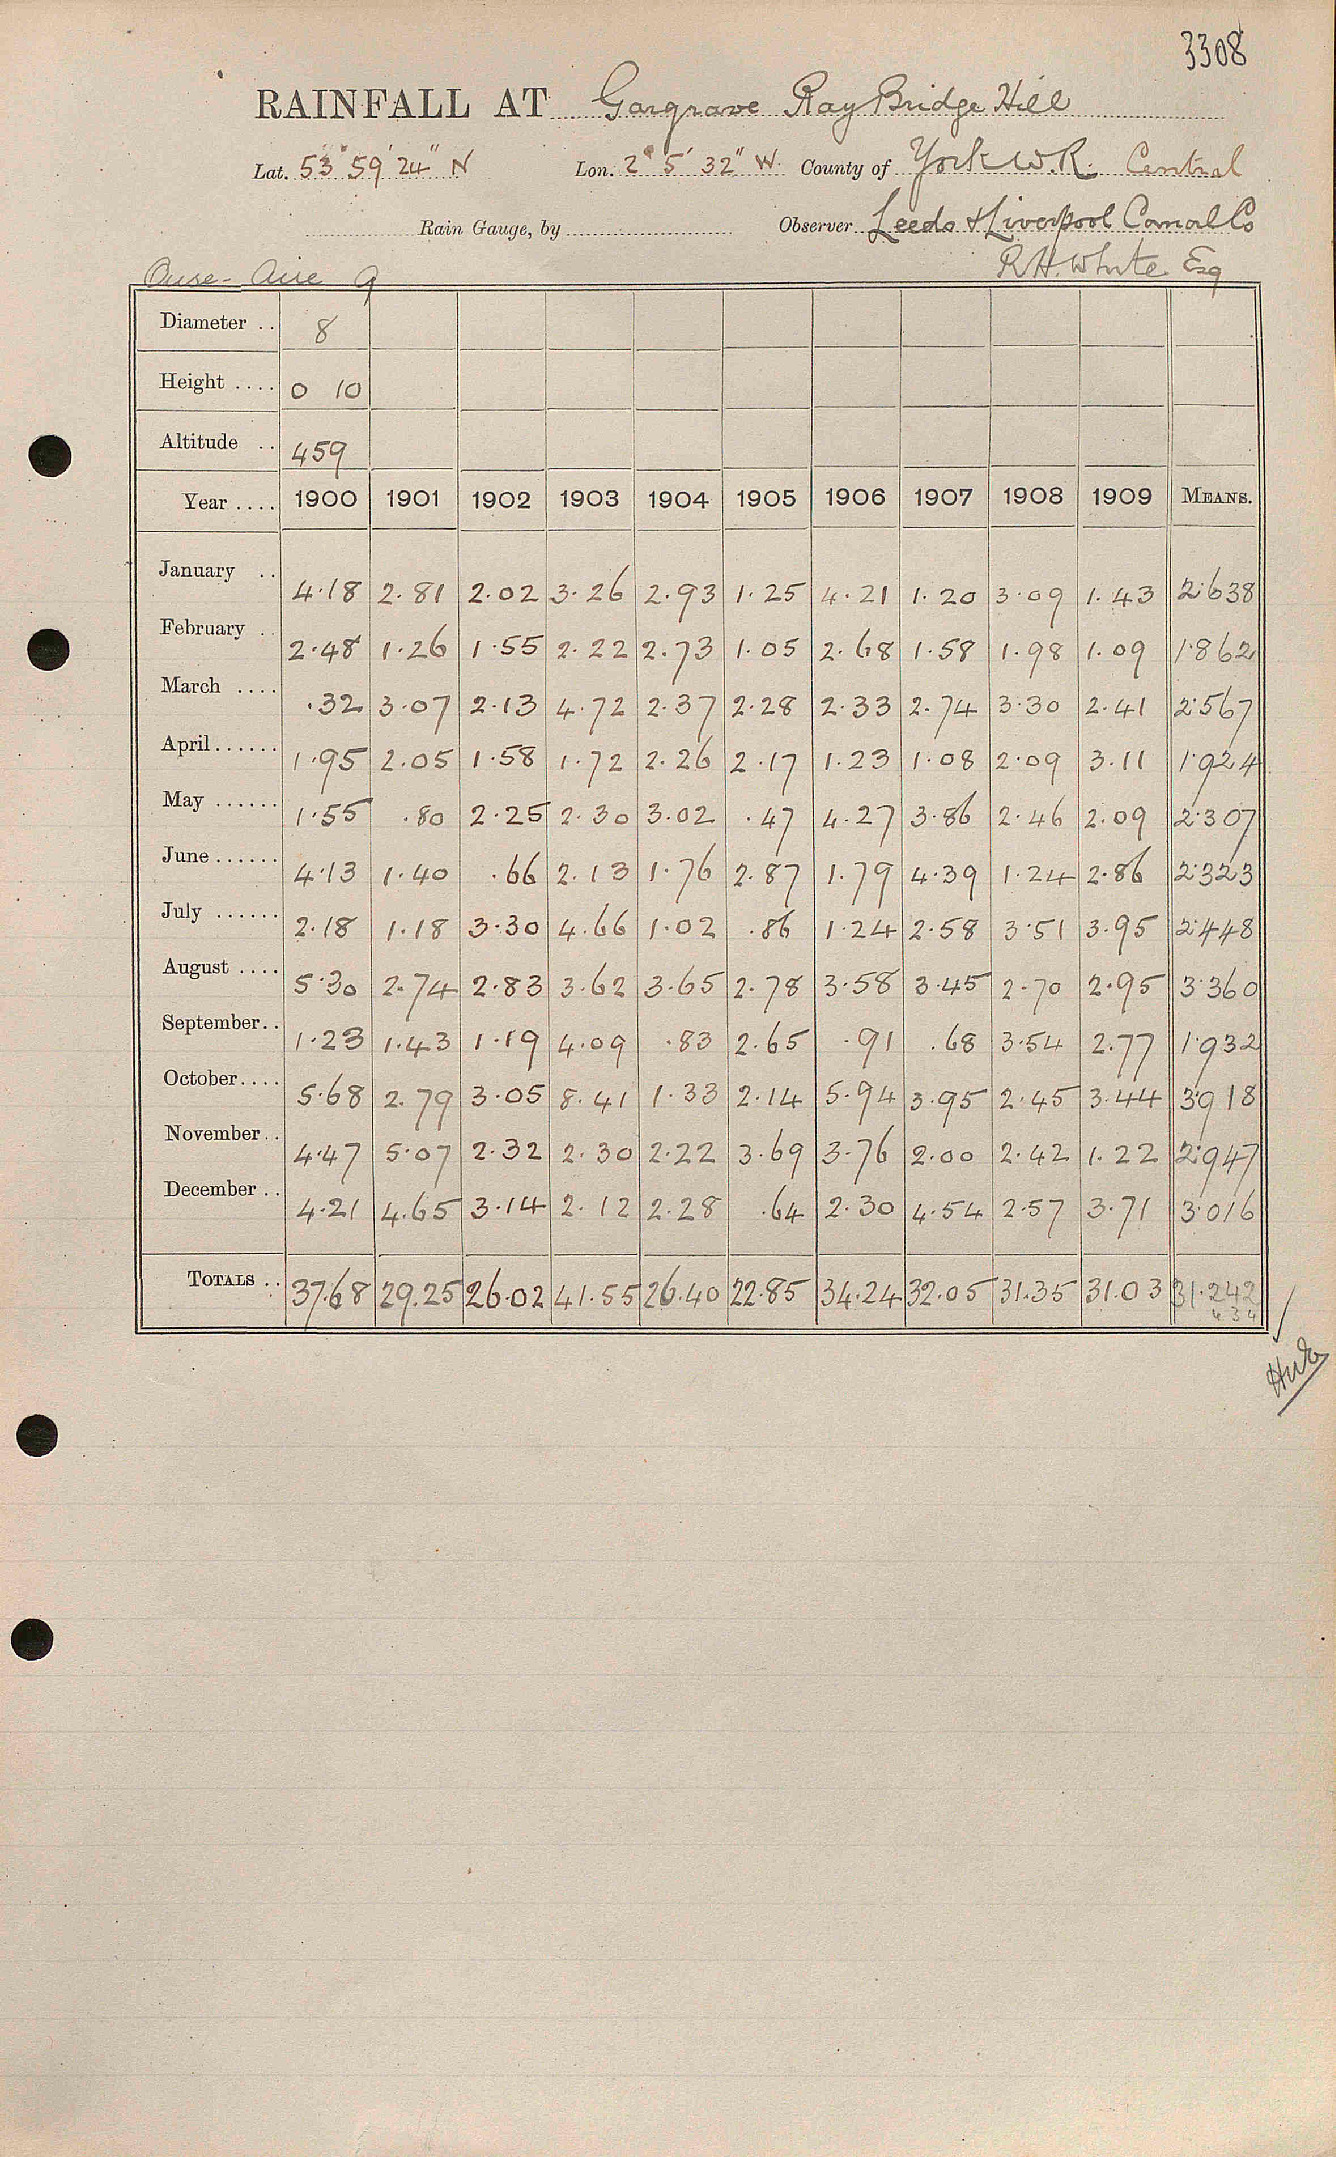 3308
RAINFALL AT Gargrave Ray Bridge Hill
Lat. 53° 59' 24" N Lon. 2° 5' 32" W. County of York W.R. Central
Rain Gauge, by Observer Leeds & Liverpool Canal Co
R H. White Esq
Ouse - Aire 9
Diameter .. 8
Height .... 0 10
Altitude .. 459
Year .... 1900 1901 1902 1903 1904 1905 1906 1907 1908 1909 MEANS.
January .. 4.18 2.81 2.02 3.26 2.93 1.25 4.21 1.20 3.09 1.43 2.638
February .. 2.48 1.26 1.55 2.22 2.73 1.05 2.68 1.58 1.98 1.09 1.862
March .... .32 3.07 2.13 4.72 2.37 2.28 2.33 2.74 3.30 2.41 2.567
April...... 1.95 2.05 1.58 1.72 2.26 2.17 1.23 1.08 2.09 3.11 1.924
May ...... 1.55 .80 2.25 2.30 3.02 .47 4.27 3.86 2.46 2.09 2.307
June ...... 4.13 1.40 .66 2.13 1.76 2.87 1.79 4.39 1.24 2.86 2.323
July ...... 2.18 1.18 3.30 4.66 1.02 .86 1.24 2.58 3.51 3.95 2.448
August .... 5.30 2.74 2.83 3.62 3.65 2.78 3.58 3.45 2.70 2.95 3.360
September.. 1.23 1.43 1.19 4.09 .83 2.65 .91 .68 3.54 2.77 1.932
October.... 5.68 2.79 3.05 8.41 1.33 2.14 5.94 3.95 2.45 3.44 3.918
November.. 4.47 5.07 2.32 2.30 2.22 3.69 3.76 2.00 2.42 1.22 2.947
December .. 4.21 4.65 3.14 2.12 2.28 .64 2.30 4.54 2.57 3.71 3.016
TOTALS .. 37.68 29.25 26.02 41.55 26.40 22.85 34.24 32.05 31.35 31.03 31.242
4 3 4